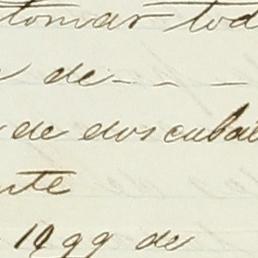 tomar tod
de - - -
de dos cuba
nte
1899 de